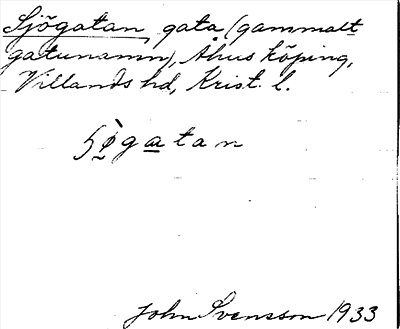 Sjögatan, gata (gammalt
gatunamn), Åhus köping,
Villands hd, Krist. l.
John Svensson 1933